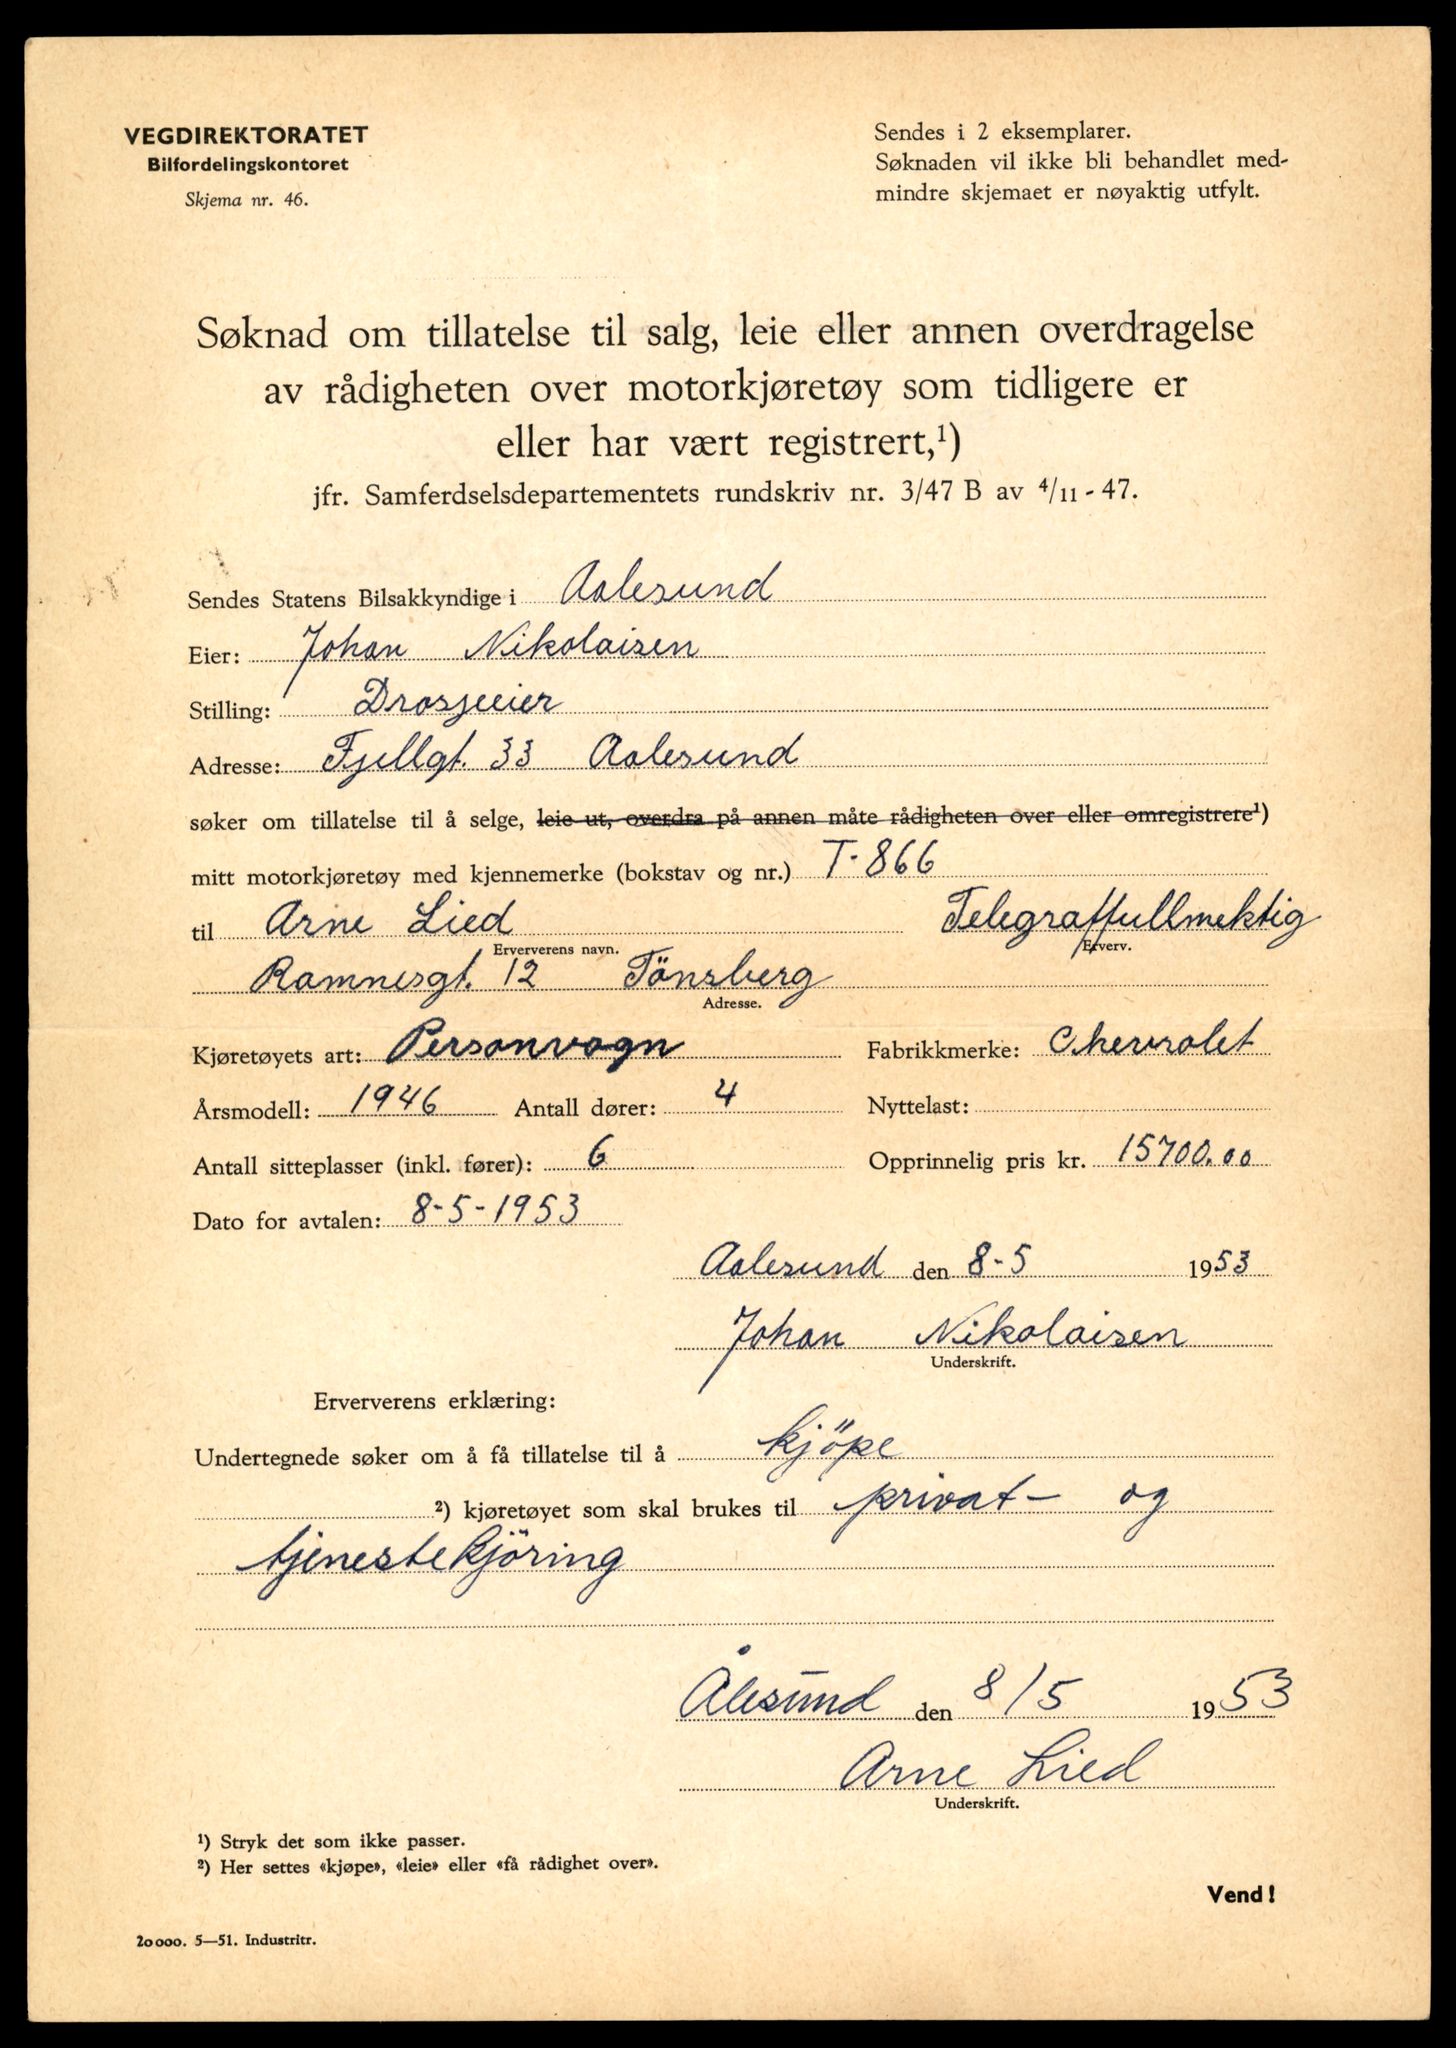 VEGDIREKTORATET
Bilfordelingskontoret
Skjema nr. 46.
Sendes i 2 eksemplarer.
Søknaden vil ikke bli behandlet med-
mindre skjemaet er nøyaktig utfylt.
Søknad om tillatelse til salg, leie eller annen overdragelse
av rådigheten over motorkjøretøy som tidligere er
eller har vært registrert,¹)
jfr. Samferdselsdepartementets rundskriv nr. 3/47 B av 4/11 - 47.
Sendes Statens Bilsakkyndige i Aalesund
Eier: Johan Nikolaisen
Stilling: Drosjeeier
Adresse: Fjellgt. 33 Aalesund
søker om tillatelse til å selge, leie ut, overdra på annen måte rådigheten over eller omregistrere¹)
mitt motorkjøretøy med kjennemerke (bokstav og nr.) T-866
til Arne Lied Telegraffullmektig
Erververens navn. Erverv.
Ramnesgt. 12 Tönsberg
Adresse.
Kjøretøyets art: Personvogn Fabrikkmerke: Chevrolet
Årsmodell: 1946 Antall dører: 4 Nyttelast:
Antall sitteplasser (inkl. fører): 6 Opprinnelig pris kr. 15700.00
Dato for avtalen: 8-5-1953
Aalesund den 8-5 1953
Johan Nikolaisen
Underskrift.
Erververens erklæring:
Undertegnede søker om å få tillatelse til å kjöpe
²) kjøretøyet som skal brukes til privat- og
tjenestekjöring
Ålesund den 8/5 1953
Arne Lied
Underskrift.
¹) Stryk det som ikke passer.
²) Her settes «kjøpe», «leie» eller «få rådighet over».
Vend!
20000. 5—51. Industritr.